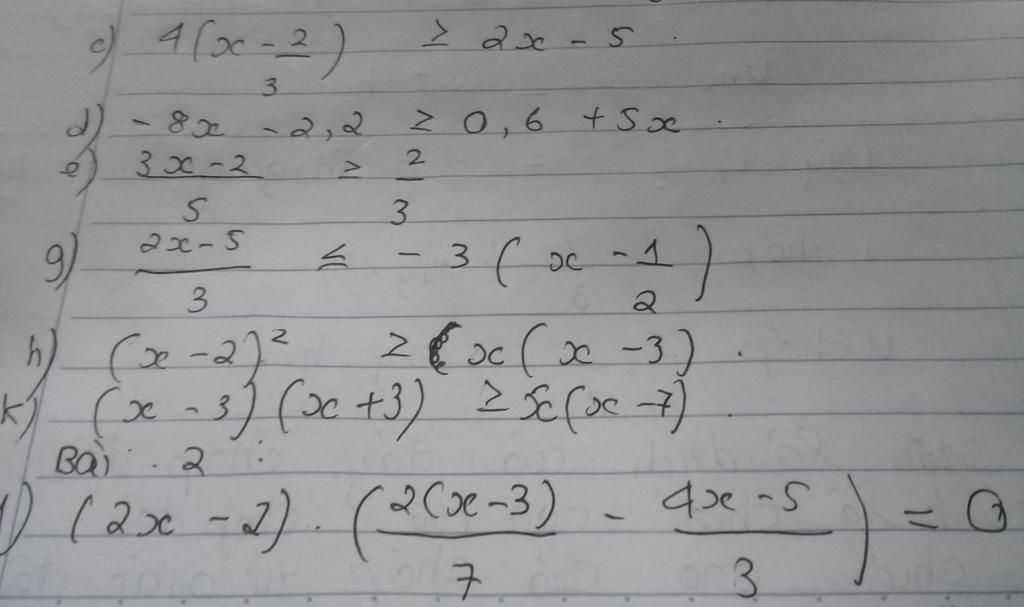 c) 4(x - 2/3) ≥ 2x - 5.
d) - 8x - 2,2 ≥ 0,6 + 5x.
e) (3x - 2)/5 ≥ 2/3
g) (2x - 5)/3 ≤ - 3(x - 1/2)
h) (x - 2)² ≥ x(x - 3).
k) (x - 3)(x + 3) ≥ x(x - 7).
Bài . 2 :
(2x - 2) . (2(x - 3)/7 - (4x - 5)/3) = 0